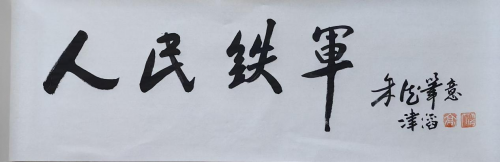 人民铁軍
朱德筆意
津滔